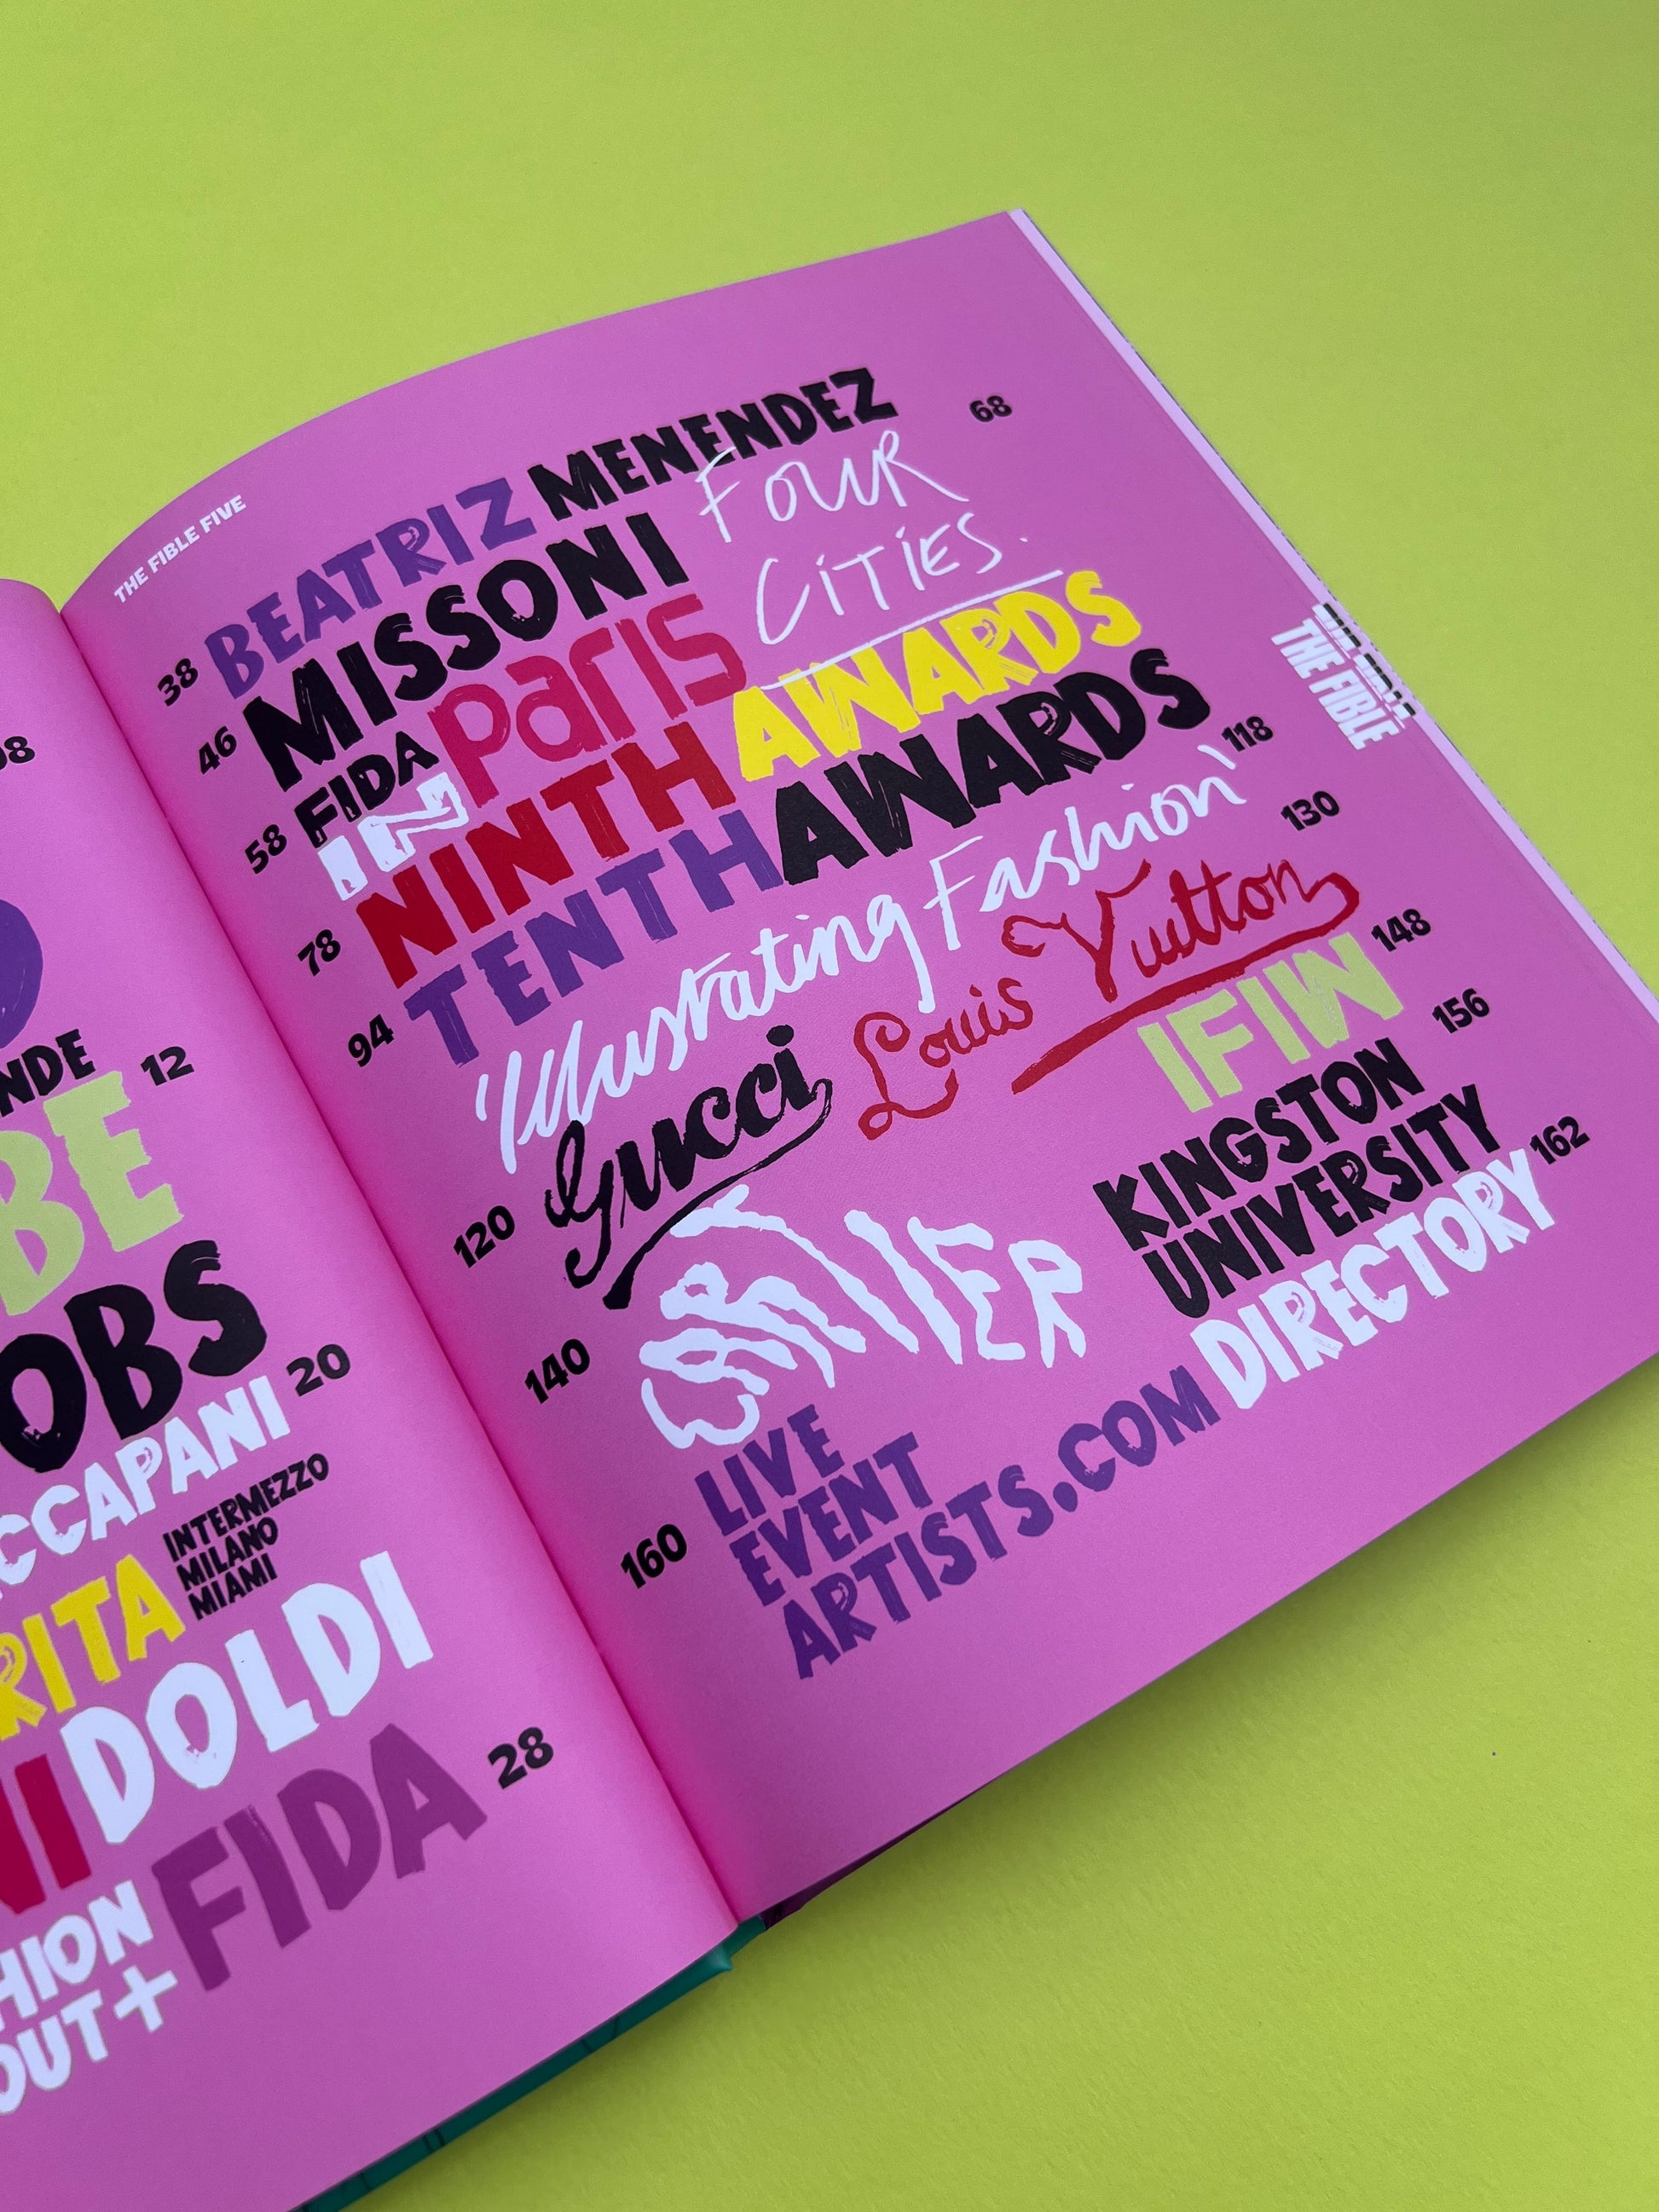 08
NDE 12
BE
OBS
CCAPANI 20
RITA INTERMEZZO
MILANO
MIAMI
NI DOLDI
HION FIDA 28
OUT+
THE FIBLE FIVE
38 BEATRIZ MENENDEZ
46 MISSONI FOUR 68
CITIES.
58 FIDA PARIS
IN
78 NINTH AWARDS
94 TENTH AWARDS
'Illustrating Fashion' 118
120 Gucci Louis Vuitton 130
140 CARTIER IFIW 148
KINGSTON 156
UNIVERSITY
160 LIVE
EVENT
ARTISTS.COM DIRECTORY 162
THE FIBLE